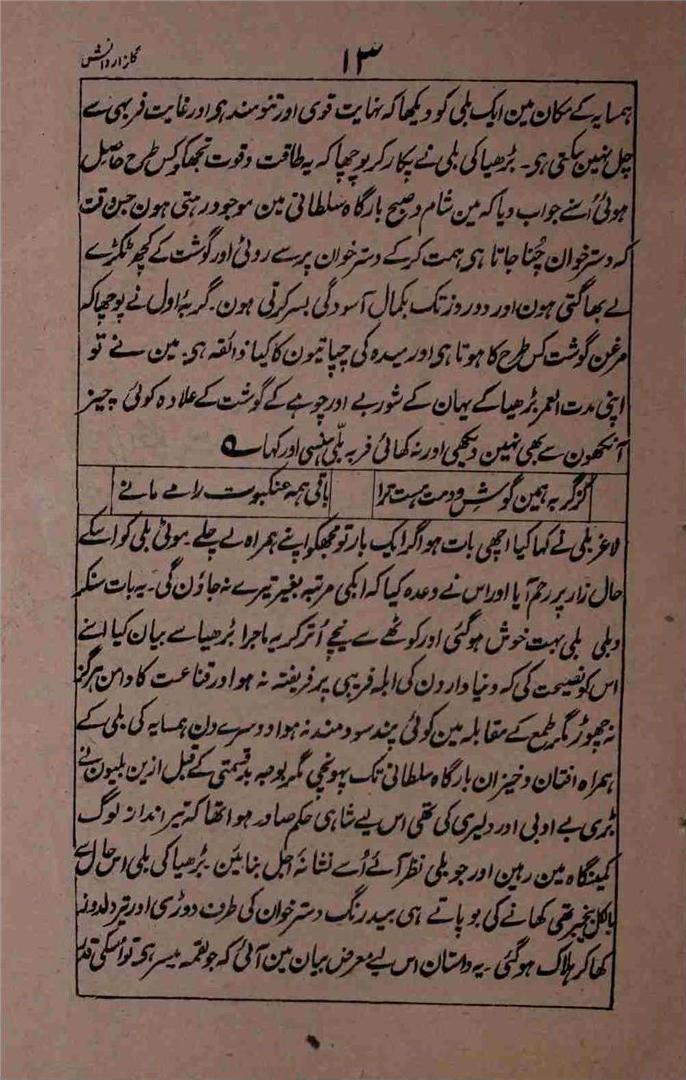 گلزار دانش
۱۳
ہمسایہ کے مکان مین ایک بلی کو دیکھا کہ نہایت قوی اور تنومند ہی اور غایت فربہی سے
چل نہین سکتی ہی۔ بڑھیا کی بلی نے پکار کر پوچھا کہ یہ طاقت و قوت تجھکو کس طرح حاصل
ہوئی اُسنے جواب دیا کہ مین شام و صبح بارگاہ سلطانی مین موجود رہتی ہون جس وقت
کہ دسترخوان چُنا جاتا ہی ہمت کرکے دسترخوان پر سے روٹی اور گوشت کے کچھ ٹکڑے
لے بھاگتی ہون اور دو روز تک بکمال آسودگی بسر کرتی ہون۔ گربۂ اول نے پوچھا کہ
مرغن گوشت کس طرح کا ہوتا ہی اور میدہ کی چپاتیون کا کیا ذائقہ ہی۔ مین نے تو
اپنی مدت العمر بڑھیا کے یہان کے شوربے اور چوہے کے گوشت کے علاوہ کوئی چیز
آنکھون سے بھی نہین دیکھی اور نہ کھائی فربہ بلّی ہنسی اور کہا ے
کز گربہ ہمین گوش و دمت ہست ترا باقی ہمہ عنکبوت را مے مانے
لاغر بلی نے کہا کیا اچھی بات ہو اگر ایک بار تو مجھکو اپنے ہمراہ لے چلے۔ موٹی بلی کو اسکے
حال زار پر رحم آیا اور اس نے وعدہ کیا کہ ابکی مرتبہ بغیر تیرے نہ جاؤن گی۔ یہ بات سنکر
دبلی بلی بہت خوش ہو گئی اور کوٹھے سے نیچے اُتر کر یہ ماجرا بڑھیا سے بیان کیا اُسنے
اس کو نصیحت کی کہ دنیا دارون کی ابلہ فریبی پر فریفتہ نہ ہو اور قناعت کا دامن ہرگز
نہ چھوڑ مگر طمع کے مقابلہ مین کوئی پند سود مند نہ ہوا دوسرے دن ہمسایہ کی بلی کے
ہمراہ افتان و خیزان بارگاہ سلطانی تک پہونچی مگر بوجہ بدقسمتی کے قبل ازین بلیون نے
بڑی بے ادبی اور دلیری کی تھی اس لیے شاہی حکم صادر ہوا تھا کہ تیر انداز لوگ
کمینگاہ مین رہین اور جو بلی نظر آئے اُسے نشانۂ اجل بنائین بڑھیا کی بلی اس حال سے
بالکل بیخبر تھی کھانے کی بو پاتے ہی بیدرنگ دسترخوان کی طرف دوڑی اور تیر دلدوز
کھا کر ہلاک ہو گئی۔ یہ داستان اس لیے معرض بیان مین آئی کہ جو لقمہ میسر ہی تو اُسکی قدر